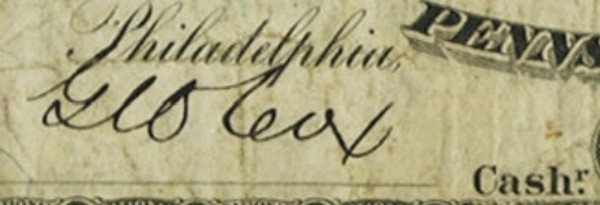 Philadelphia, PENNS
Geo Cox
Cash.r